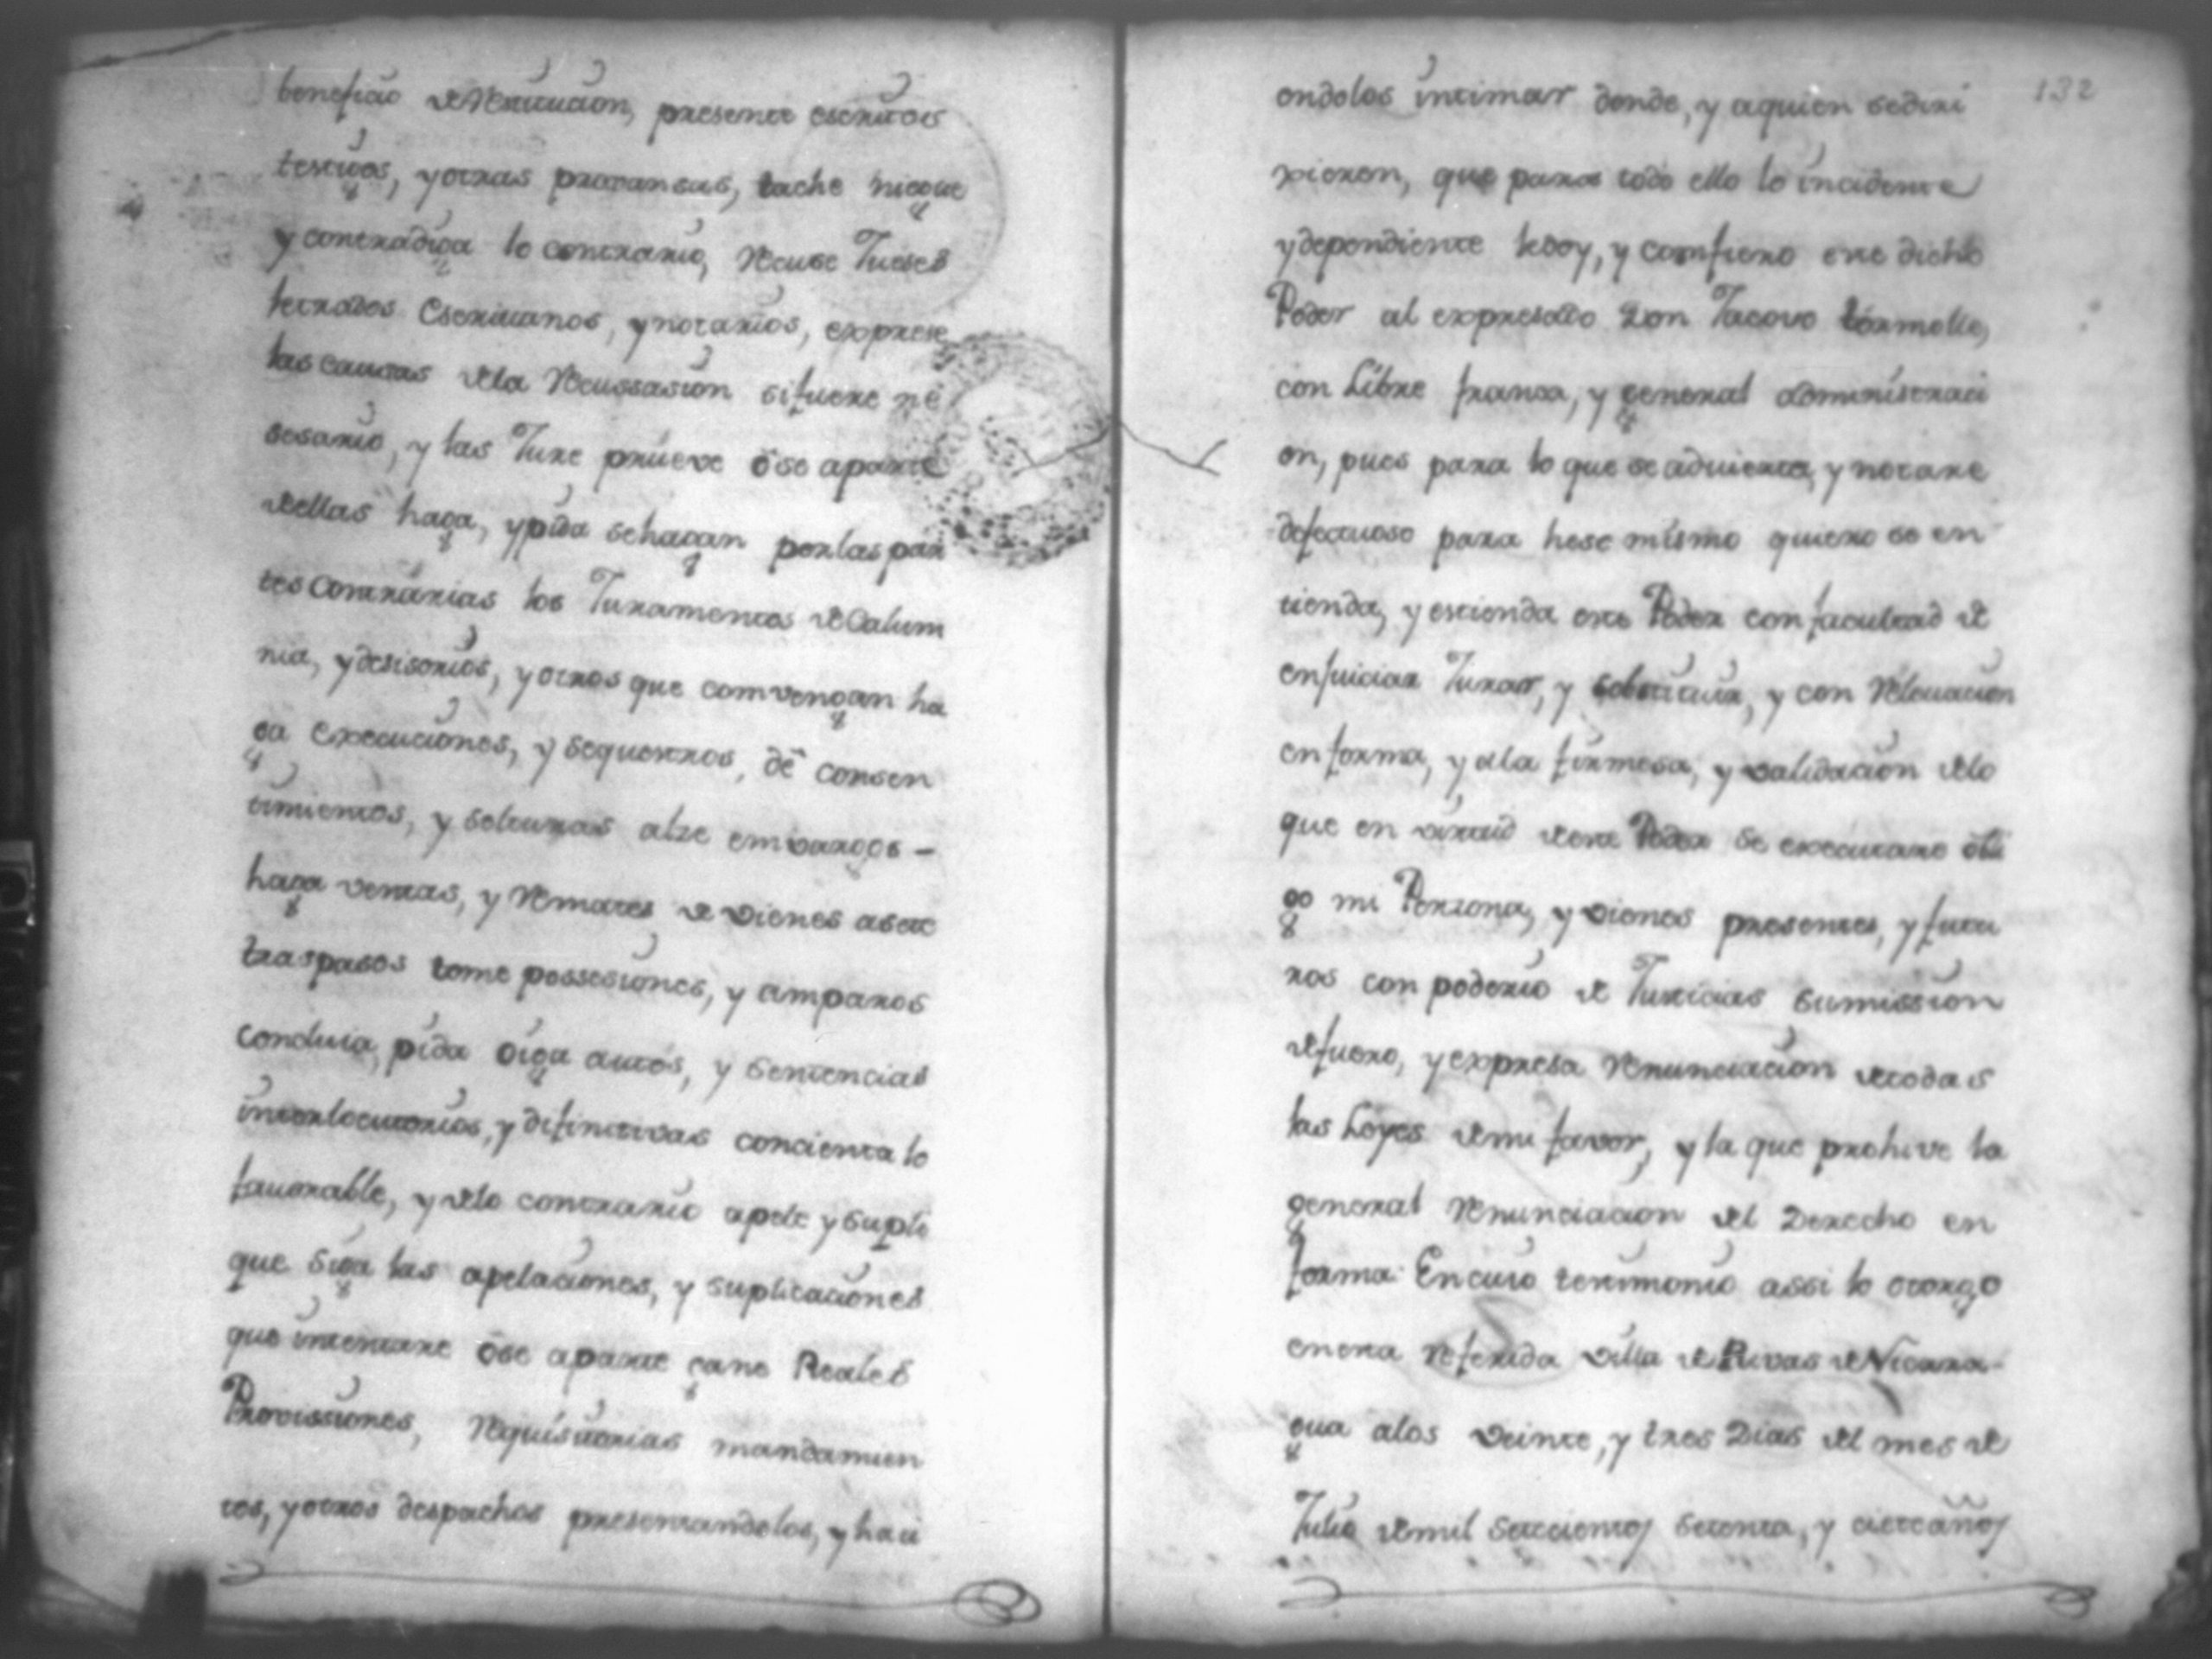 beneficio de Restitucion, presente escritos
testigos, y otras provansas, tache niegue
y contradiga lo contrario, Recuse Jueses
letrados Escrivanos, y notarios, exprese
las causas de la Recussasion si fuere ne
sesario, y las Jure prueve ô se aparte
de ellas haga, y pida se hagan por las par
tes Contrarias los Juramentos de Calum
nia, y desisorios, y otros que comvengan ha
ga Execuciones, y sequestros, dê consen
timientos, y solturas alze emvargos -
haga ventas, y Remates de vienes asete
traspasos tome possesiones, y amparos
concluia, pida oiga autos, y sentencias
interlocutorios, y difinitivas concienta lo
favorable, y de lo contrario apele y supli
que siga las apelaciones, y suplicaciones
que intentare ôse aparte gane Reales
Provissiones, Requisitorias mandamien
tos, y otros despachos presentandolos, y haci
132
endolos intimar donde, y a quien se diri
xieren, que para todo ello lo incidente
y dependiente le doy, y comfiero este dicho
Poder al expresado Don Jacovo
con Libre franca, y general administraci
on, pues para lo que se advierta, y notare
defectuoso para hese mismo quiero se en
tienda, y estienda este Poder con facultad de
enjuiciar Jurar, y sobstituir, y con Relevacion
en forma, y a la firmesa, y validacion de lo
que en virtud de este Poder se executare obli
go mi Perzona, y vienes presentes, y futu
ros con poderio de Justicias sumission
de fuero, y expresa Renunciacion de todas
las Leyes de mi favor, y la que prohive la
general Renunciacion del Derecho en
forma: En cuio testimonio assi lo otorgo
en esta Referida villa de Rivas de Nicara-
gua a los veinte, y tres Dias del mes de
Julio de mil setecientos setenta, y siete años